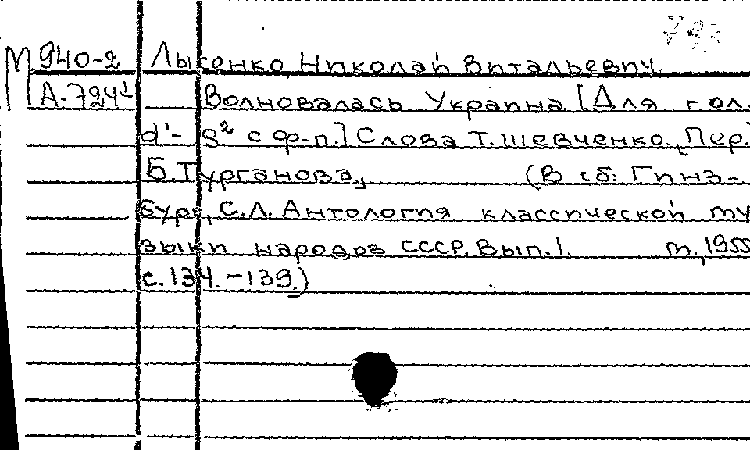 М 940-2 Лысенко, Николай Витальевич
А-724¹ Волновалась Украина [Для гол.
d¹-g² с ф-п.] Слова Т. Шевченко, Пер.
Б. Турганова, (В сб: Гинз-
бург, С.Л. Антология классической му
зыки народов СССР. Вып. 1. М, 1955
с. 134.-139.)